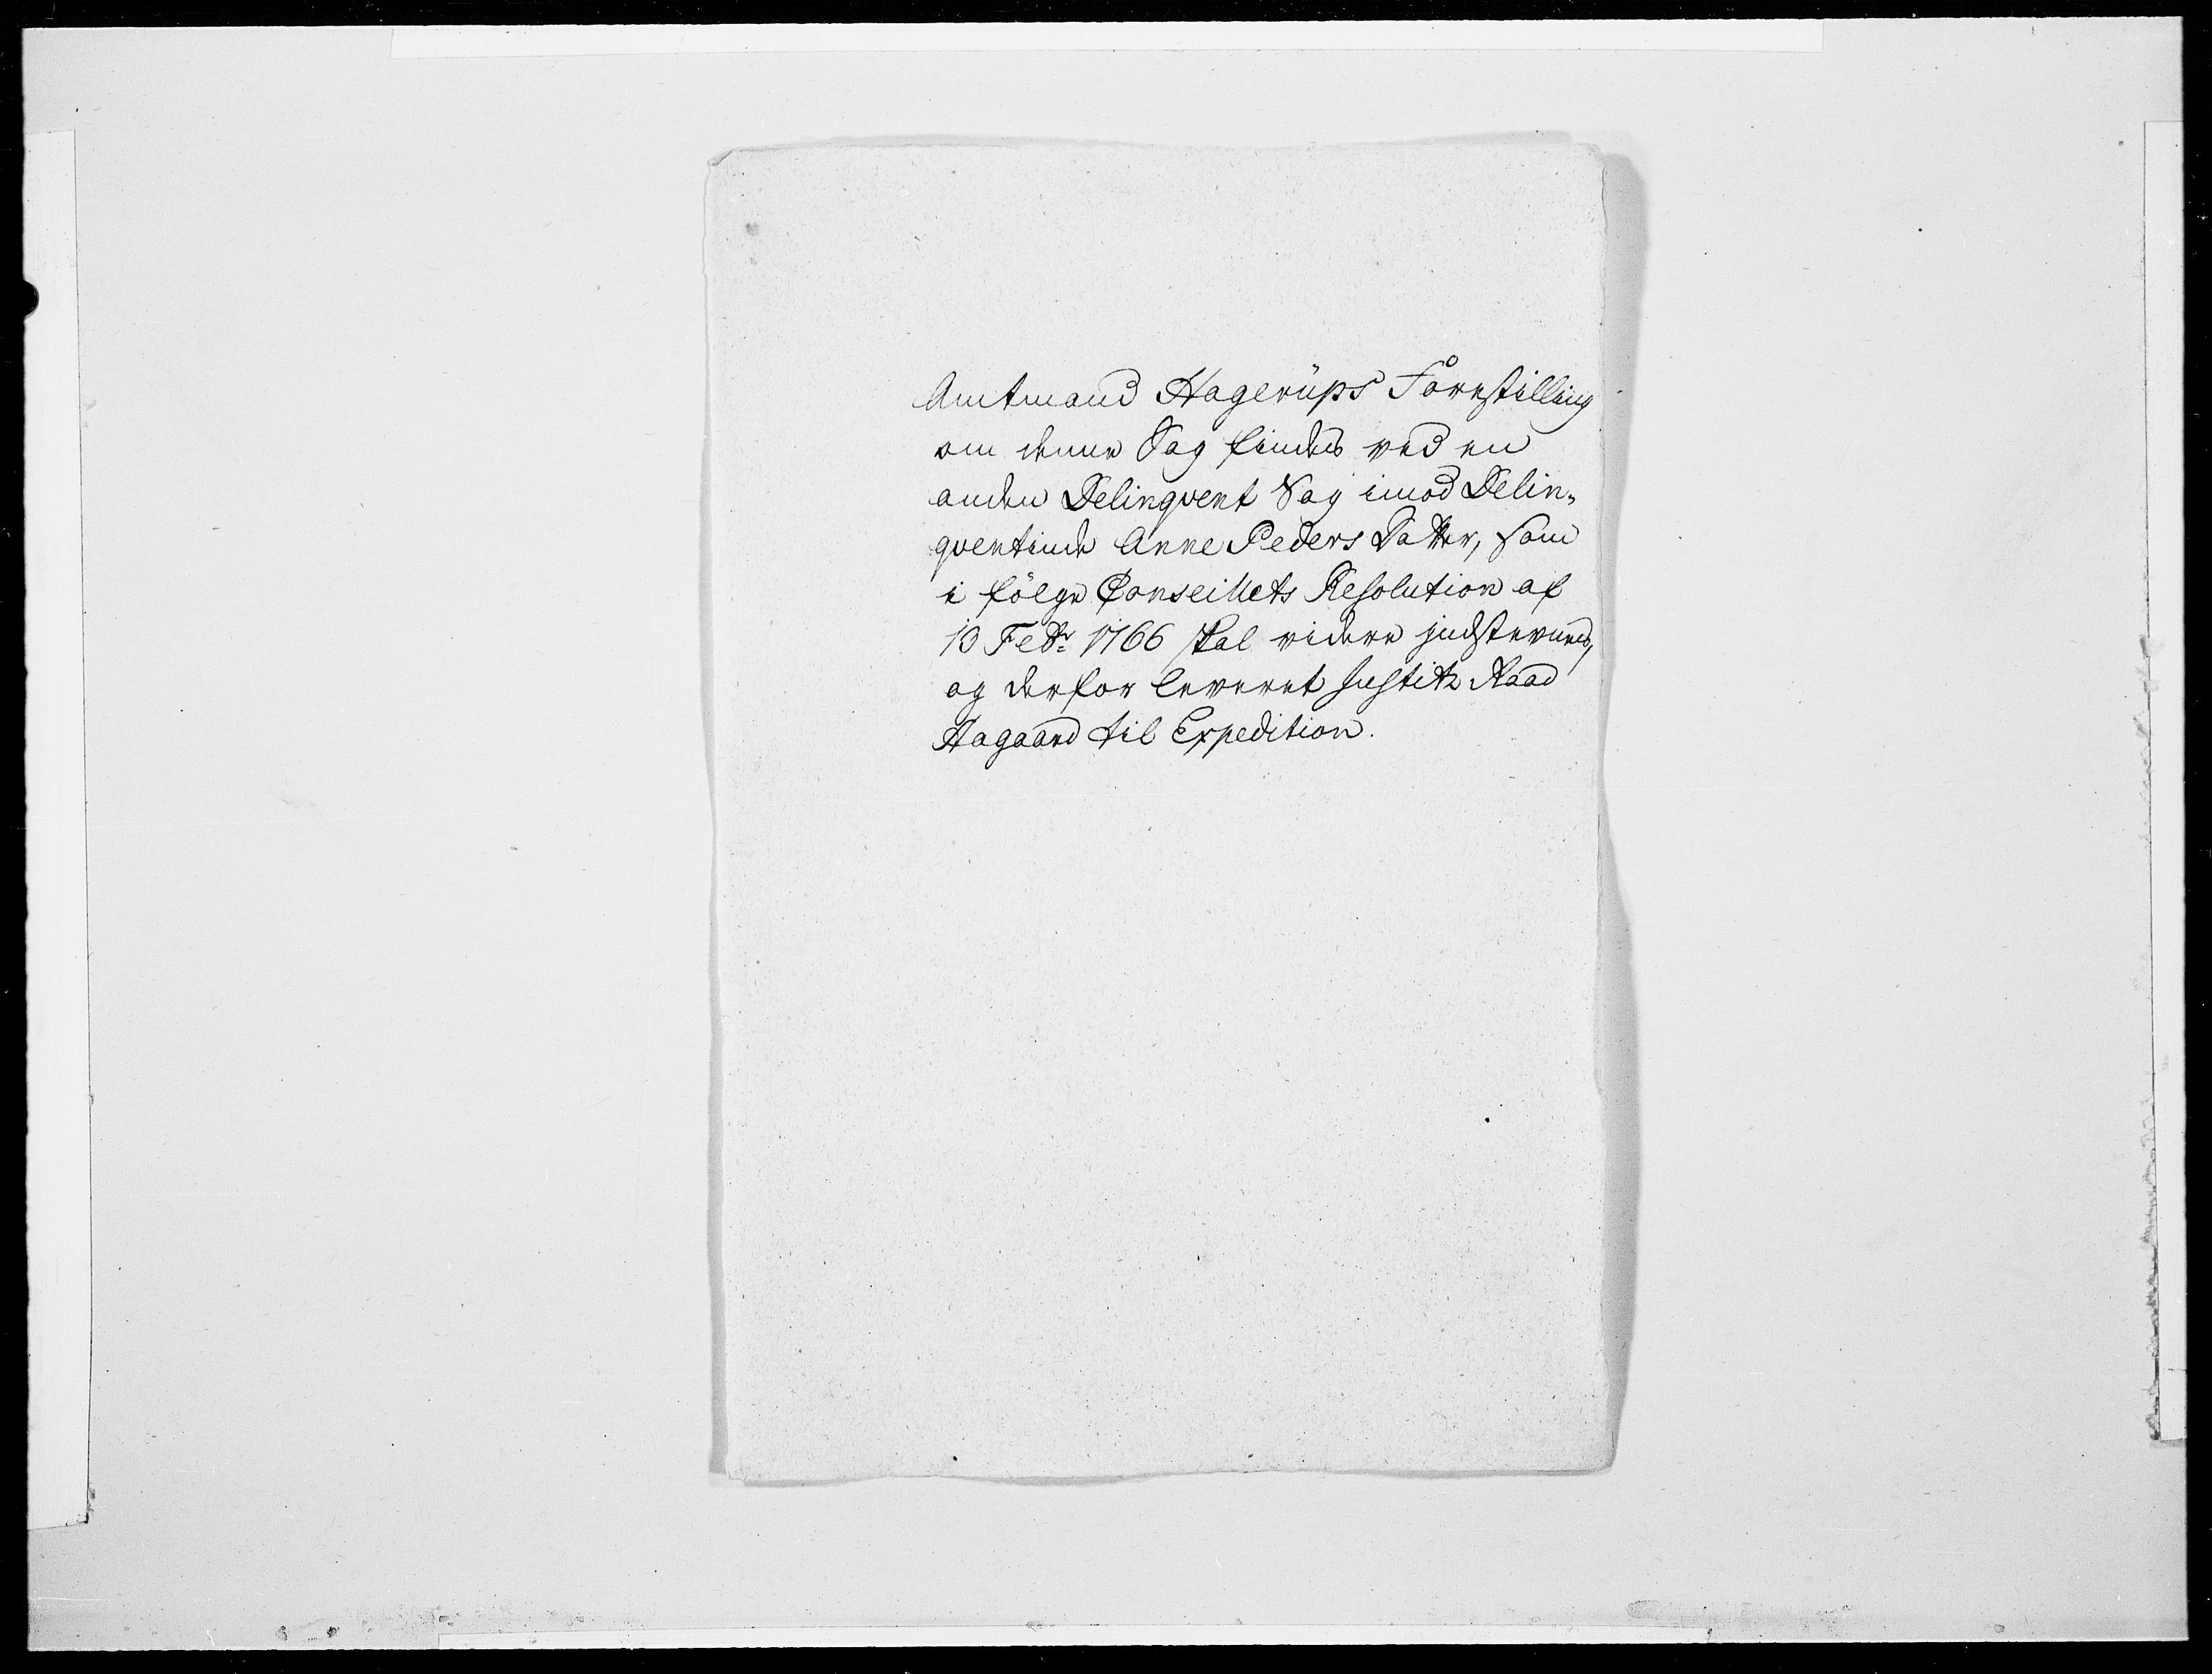 Amtmand Hagerups Forestilling
om denne Sag findes ved en
anden Delinqvent Sag imod Delin-
qventinde Anne Peders Datter, som
i følge Conseillets Resolution af
13 Febr: 1766 skal videre indstevnes,
og derfor leveret Justitz Raad
Aagaard til Expedition.